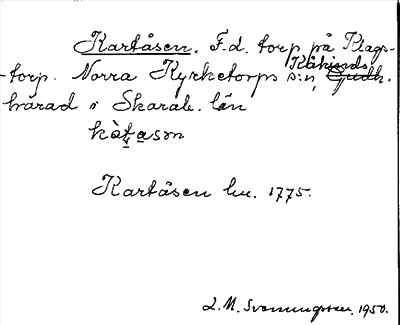 Kartåsen. F.d. torp på Klags-
torp. Norra Kyrketorps s:n, Kåkinds
härad i Skarab. län
Kartåsen hu. 1775.
L.M. Svenungsson, 1950.